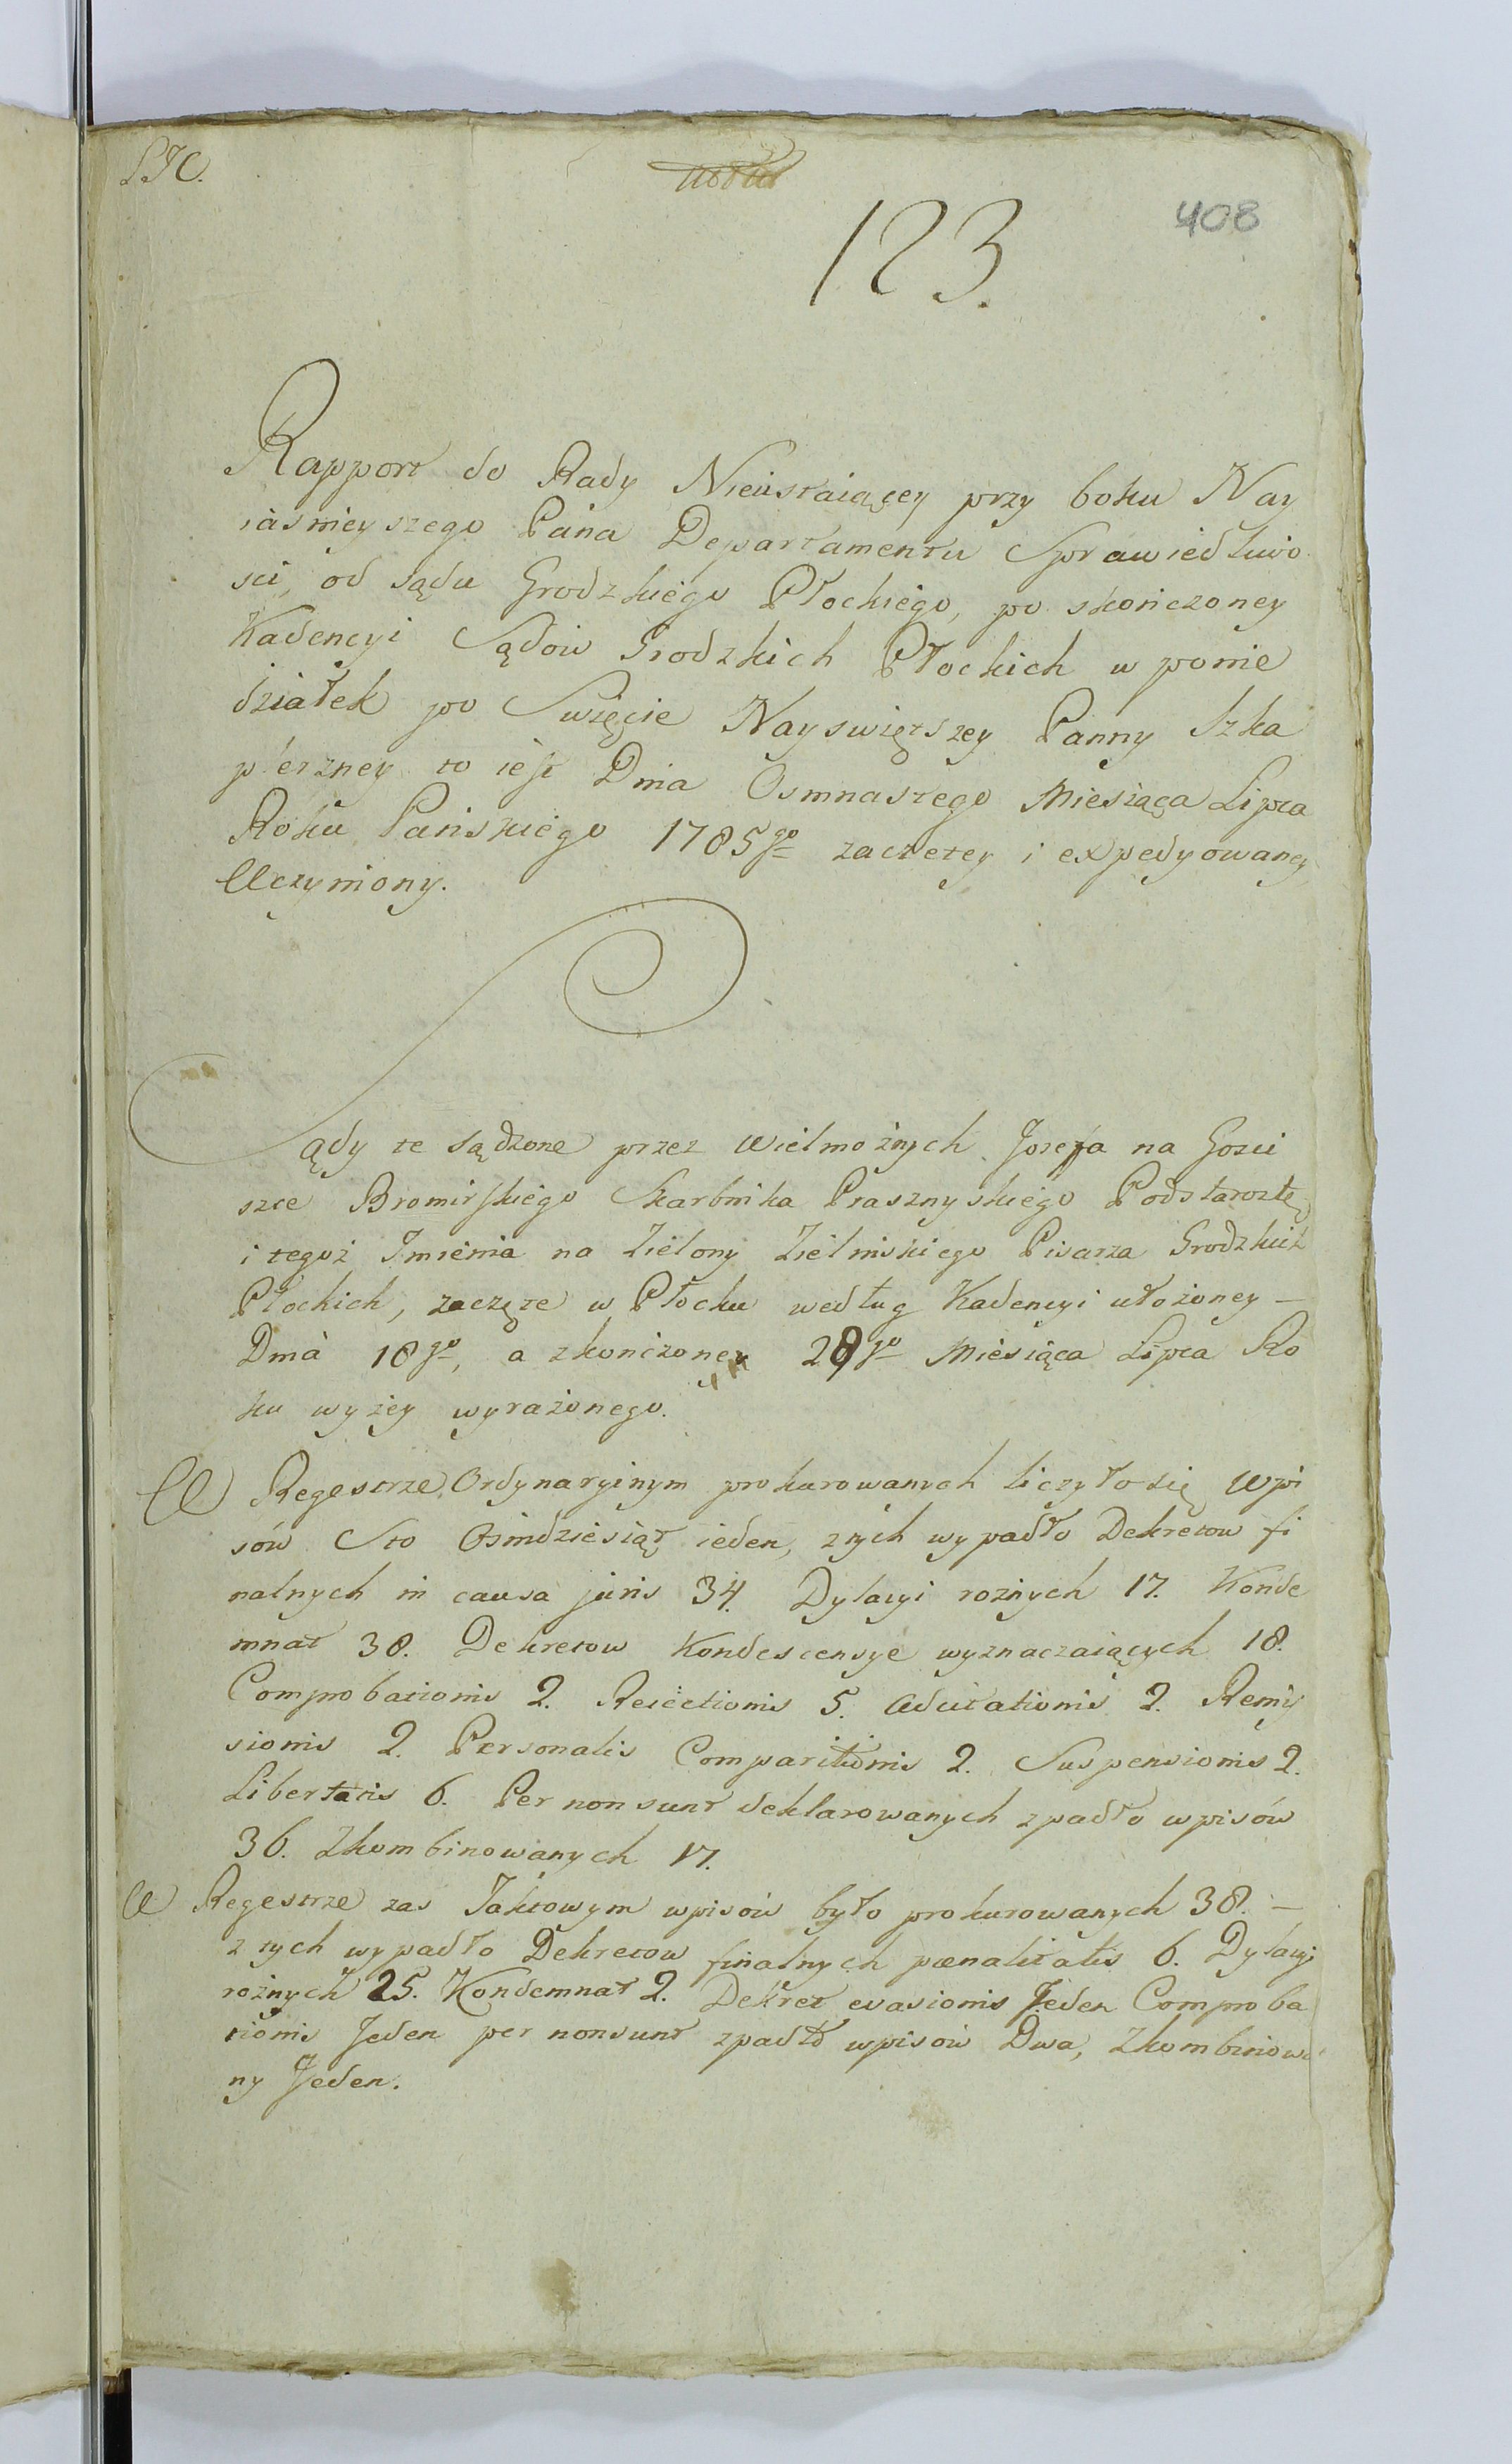 LJC.
123.
408
Rapport do Rady Nieustaiącey przy boku Nay
iasnieyszego Pana Departamentu Sprawiedliwo
sci, od sądu Grodzkiego Płockiego, po skończoney
Kadencyi Sądow Grodzkich Płockich w ponie
działek po Swięcie Nayswiętszey Panny Szka
plerzney to iest Dnia Osmnastego Miesiąca Lipca
Roku Pańskiego 1785go zaczetey i expedyowaney
Uczyniony.
Sądy te sądzone przez Wielmożnych Jozefa na Gosci
szce Bromirskiego Skarbnika Prasznyskiego Podstarostę
i tegoż Imienia na Zielony Zielinskiego Pisarza Grodzkich
Płockich, zaczęte w Płocku według Kadencyi ułożoney –
Dnia 18go, a zkończoney 29go Miesiąca Lipca Ro
ku wyżey wyrażonego.
W Regestrze Ordynaryinym prokurowanych liczyło się Wpi
sów Sto Osmdziesiąt ieden, z tych wypadło Dekretow fi
nalnych in causa juris 34. Dylacyi rożnych 17. Konde
mnat 38. Dekretow Kondescensye wyznaczaiących 18.
Comprobationis 2. Reiectionis 5. Adcitationis 2. Remis
sionis 2. Personalis Comparitionis 2. Suspensionis 2.
Libertatis 6. Per non sunt deklarowanych zpadło wpisów
36. Zkombinowanych 17.
W Regestrze zas Taktowym wpisów było prokurowanych 38. –
z tych wypadło Dekretow finalnych pœnalitatis 6. Dylacyi
rożnych 25. Kondemnat 2. Dekret evasionis Jeden Comproba
tionis Jeden per nonsunt zpadło wpisów Dwa, Zkombinowa
ny Jeden.